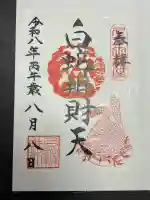 奉拝
白蛇辨財天
令和八年丙午歳八月八日